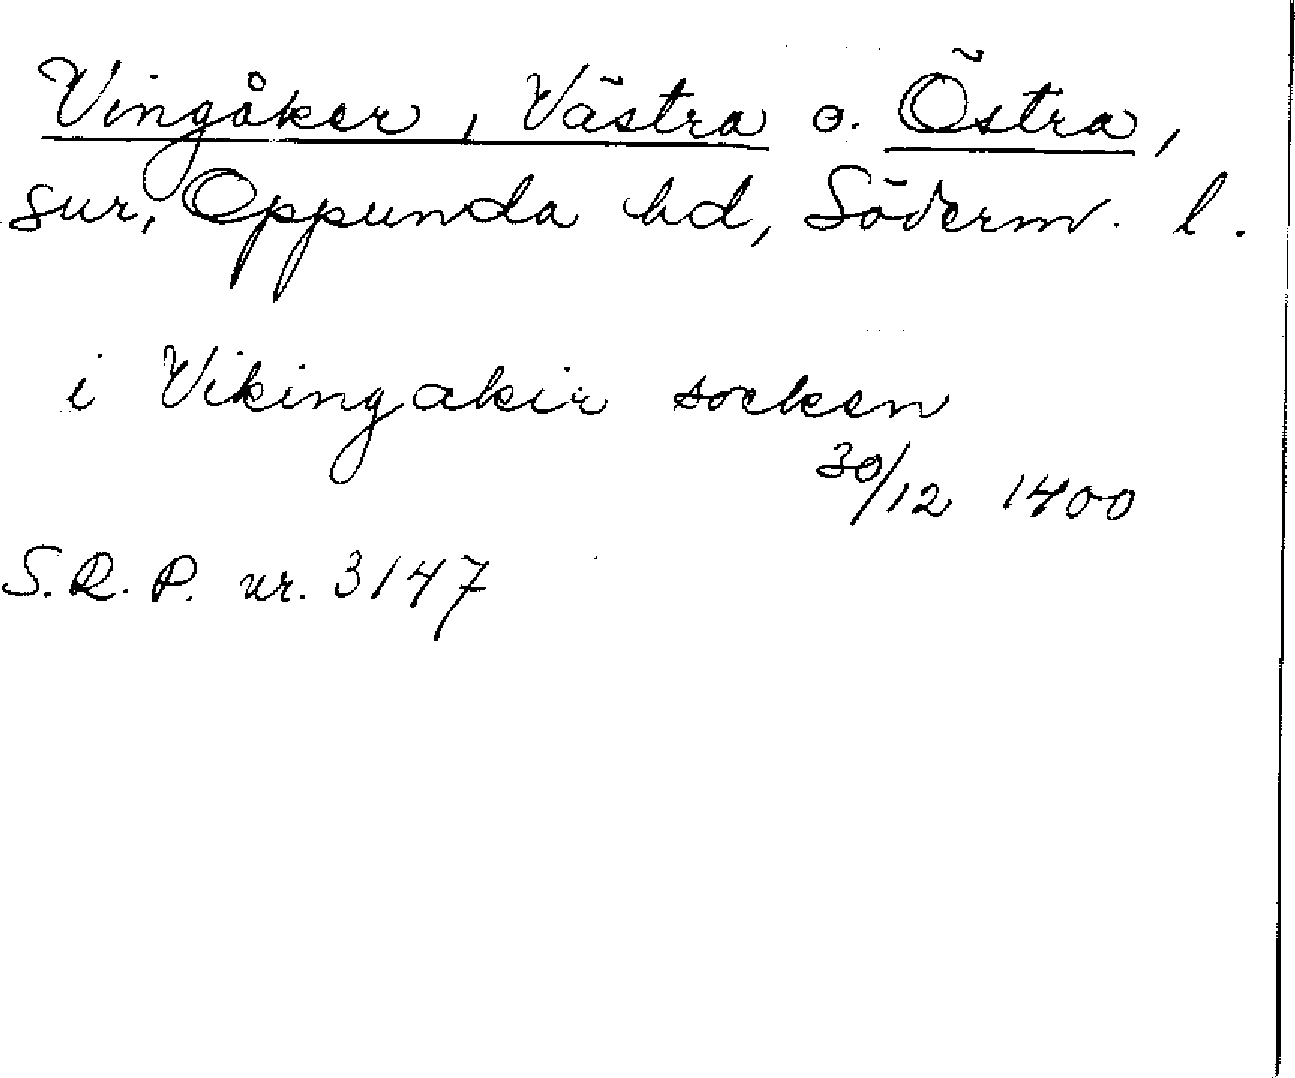 Vingåker, Västra o. Östra,
snr, Oppunda hd, Söderm. l.
i Vikingakir socken
30/12 1400
S.R.P. nr. 3147